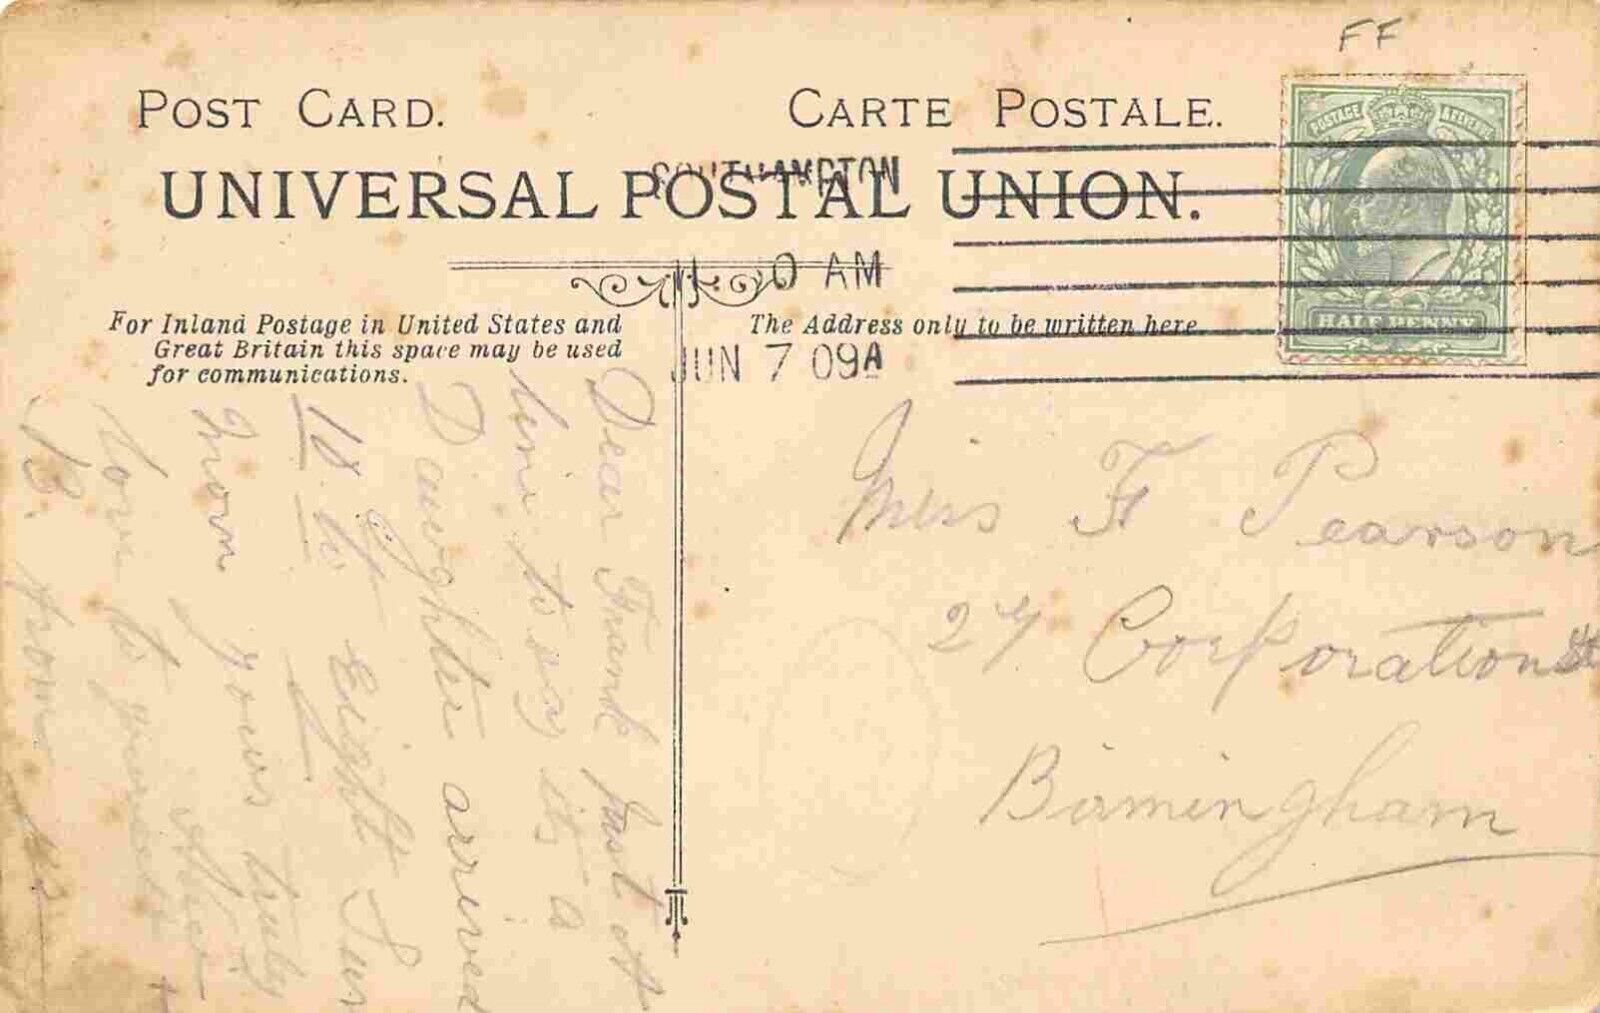 FF
POST CARD.
CARTE POSTALE.
POSTAGE & REVENUE
HALF PENNY
UNIVERSAL POSTAL UNION.
SOUTHAMPTON
0 AM
JUN 7 09A
For Inland Postage in United States and
Great Britain this space may be used
for communications.
The Address only to be written here
Dear Frank just a
line to say its a
Daughter arrived
10 to Eight Sun
morn yours truly
love to yourself
B. from
Miss F Pearson
27 Corporation St
Birmingham